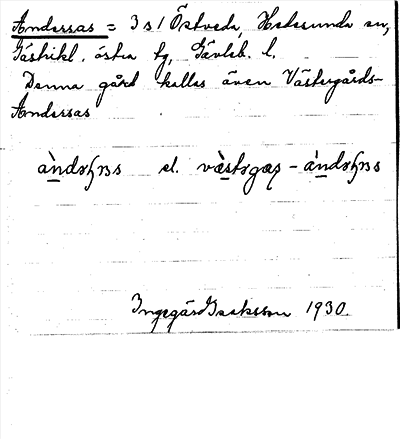 Anderssas = 3 s/ Östveda, Hedesunda sn,
Gästrikl. östra tg, Gävleb. l.
Denna gård kallas även Västergårds-
Anderssas
àndəʂɐs el. væ̀stərgaʂ - àndəʂɐs
Ingegärd Isaksson 1930.